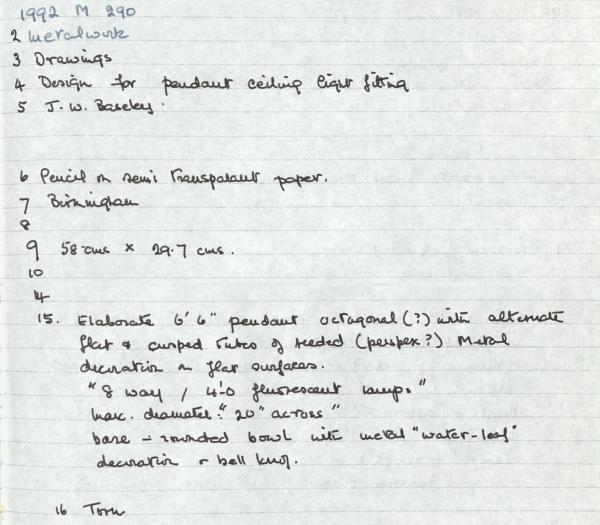 1992 M 290
2 Metalwork
3 Drawings
4 Design for pendant ceiling light fitting
5 J. W. Baseley.
6 Pencil on semi transparent paper.
7 Birmingham
8
9 58 cms × 29.7 cms.
10
14
15. Elaborate 6' 6" pendant octagonal (?) with alternate
flat & cusped tubes of reeded (perspex?) Metal
decoration on flat surfaces.
"8 way / 4'-0 fluorescent lamps"
Max. diameter: "20" across"
base - rounded bowl with metal "water-leaf"
decoration & bell knop.
16 Torn